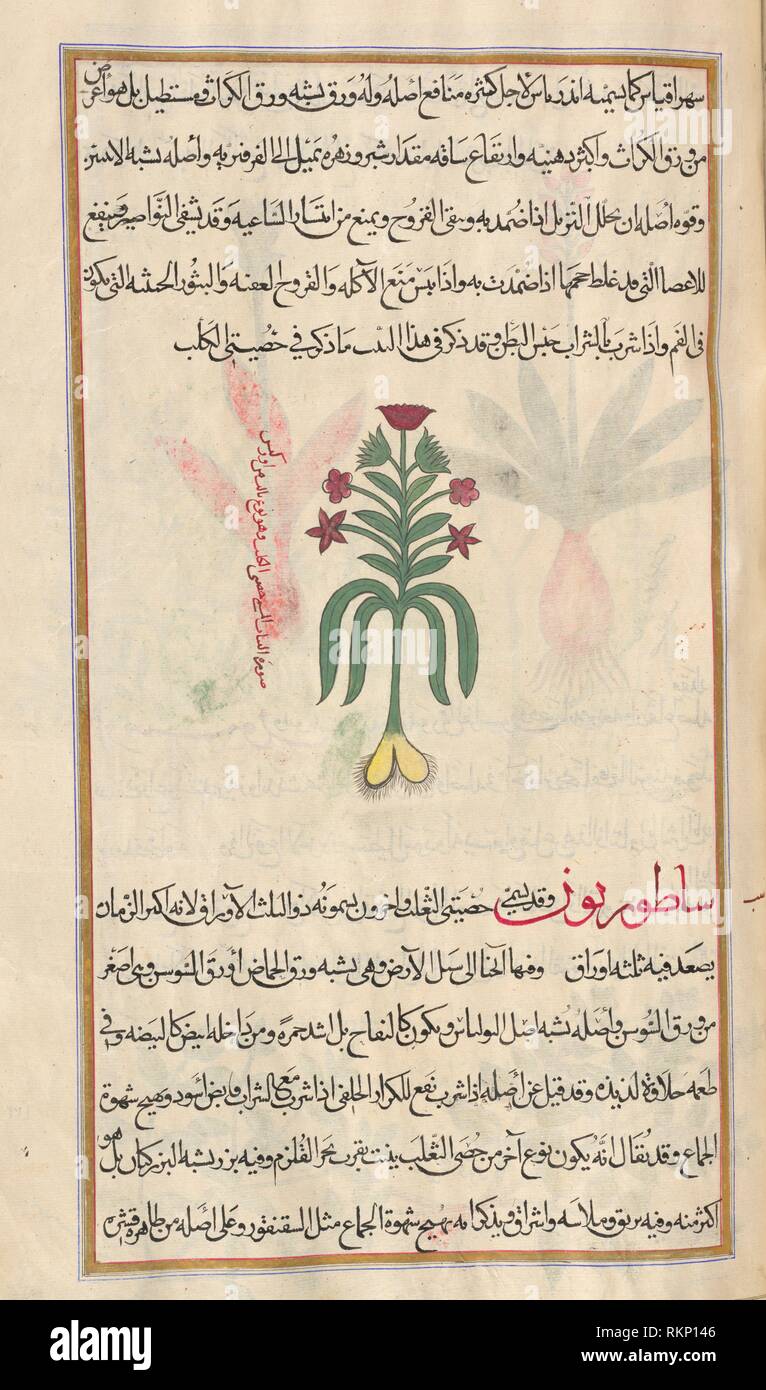 سهراقياس كما يسميه اندرياس لاجل كثرة منافع أصله وله ورق يشبه ورق الكراث مستطيل بل هو اعرض
من ورق الكراث واكثر دهنيه وارتفاع ساقه مقدار شبر وزهره تميل الى الفرفيريه وأصله يشبه
وقوه أصله ان يحلل التربل اذا ضمد به وينقى القروح ويمنع من انتشار الساعيه وقد يشفى النواصير وينفع
للاعضا التى قد غلظ حجمها اذا ضمدت به واذا يبس منع الآكله والقروح العفنه والبثور الخبيثه التى يكون
فى الفم واذا شرب بالشراب حبس البطن وقد ذكر فى هذا ما ذكر فى خصيتى الكلب
صورة النبات المسمى خصى الكلب وهو نوع ثالث من اورخس
ساطوريون وقد يسمى خصيتى الثعلب واخرون يسمونه ذو الثلث الأوراق لانه اكثر الزمان
يصعد فيه ثلثه اوراق وفيها انحنا الى الأرض وهى يشبه ورق الحماض أو ورق السوسن وهى اصغر
من ورق السوسن وأصله يشبه اصل البولباس ويكون كالتفاح بل اشد حمرة ومن داخله ابيض كالبيضه وفى
طعمه حلاوة لذيذه وقد قيل عن أصله اذا شرب نفع للكزاز الخلفى اذا شرب مع الشراب قابض أسود وهيج شهوة
الجماع وقد يقال انه يكون نوع آخر من خصى الثعلب ينبت بقرب بحر القلزم وفيه بزر يشبه البزر كتان بل هو
اكثر منه وفيه بريق وملاسه واشراق ويذكر انه يهيج شهوة الجماع مثل السقنقور وعلى أصله من ظاهره قشره
alamy
Image ID: RKP146
www.alamy.com